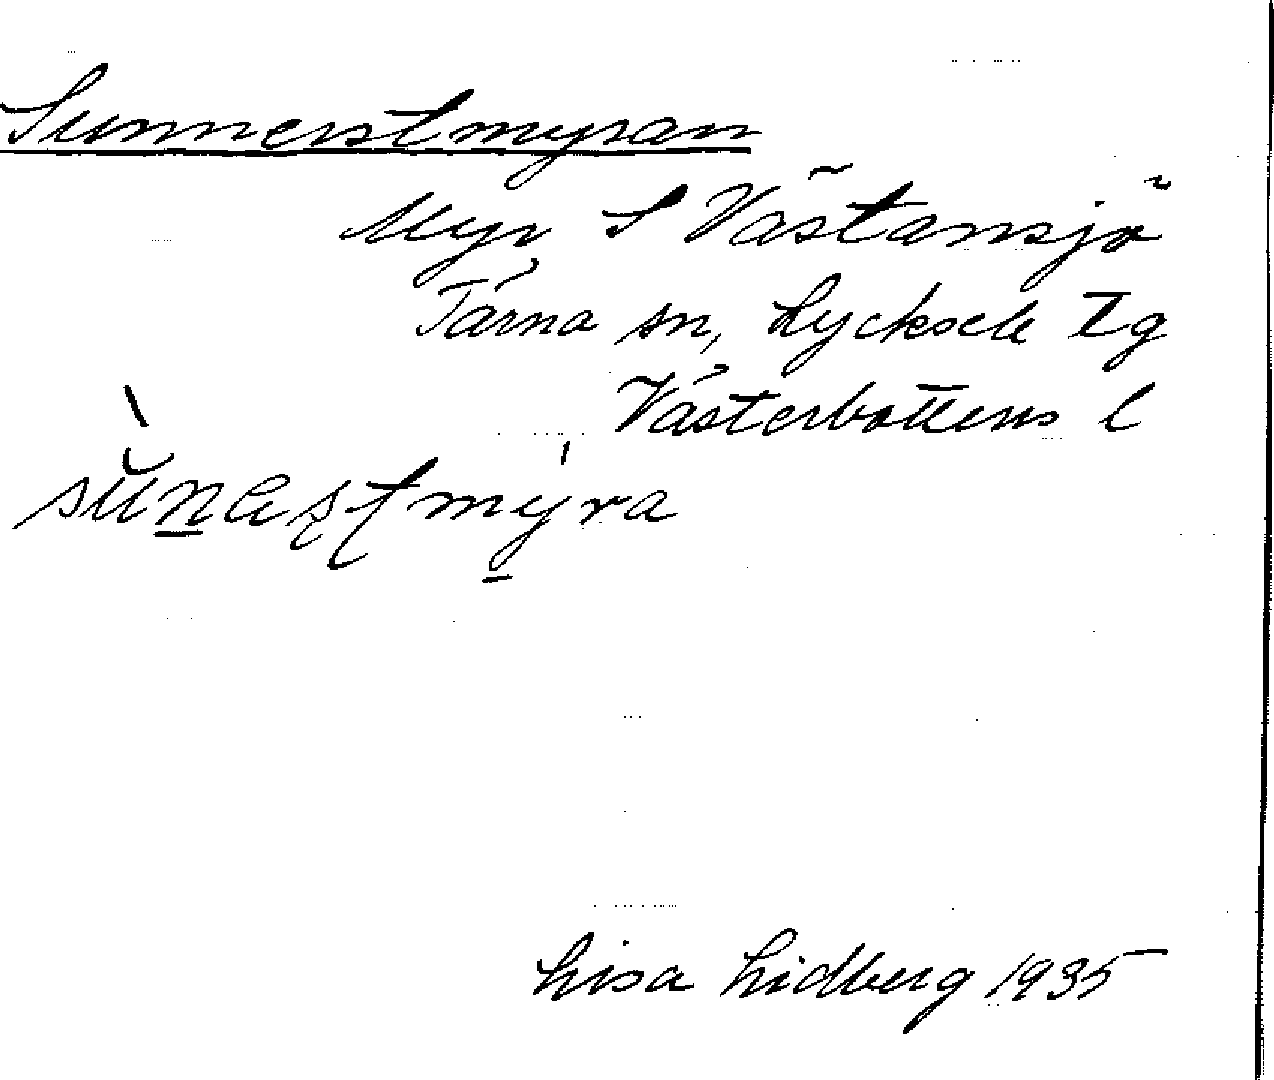 Sunnerstmyran
Myr S Västansjö
Tärna sn, Lycksele lg
Västerbottens l
Lisa Lidberg 1935